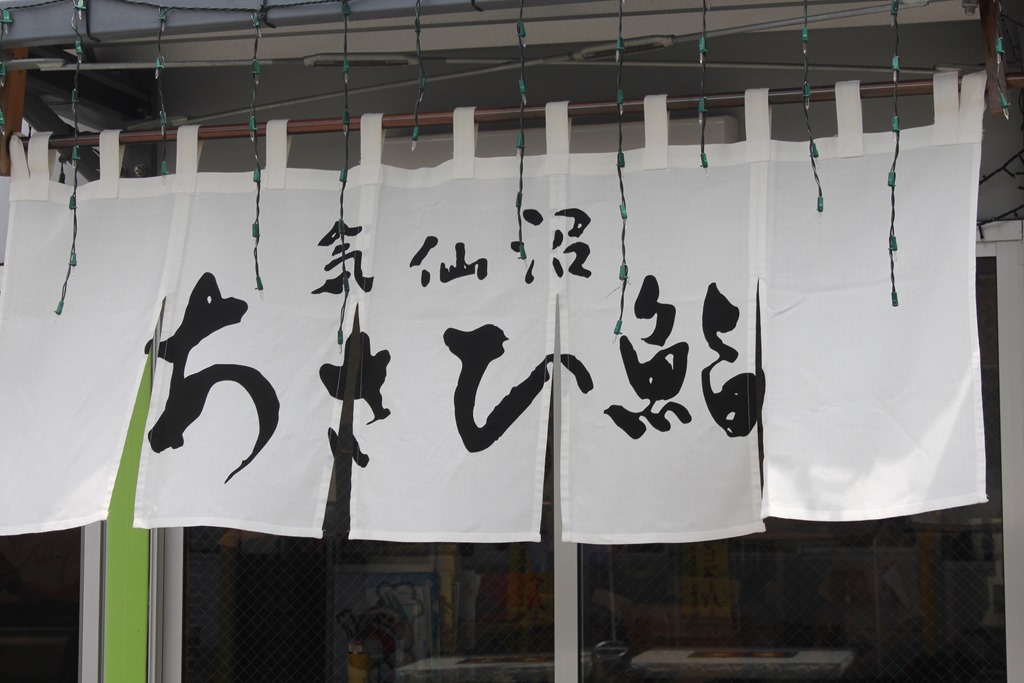 気仙沼
あさひ鮨